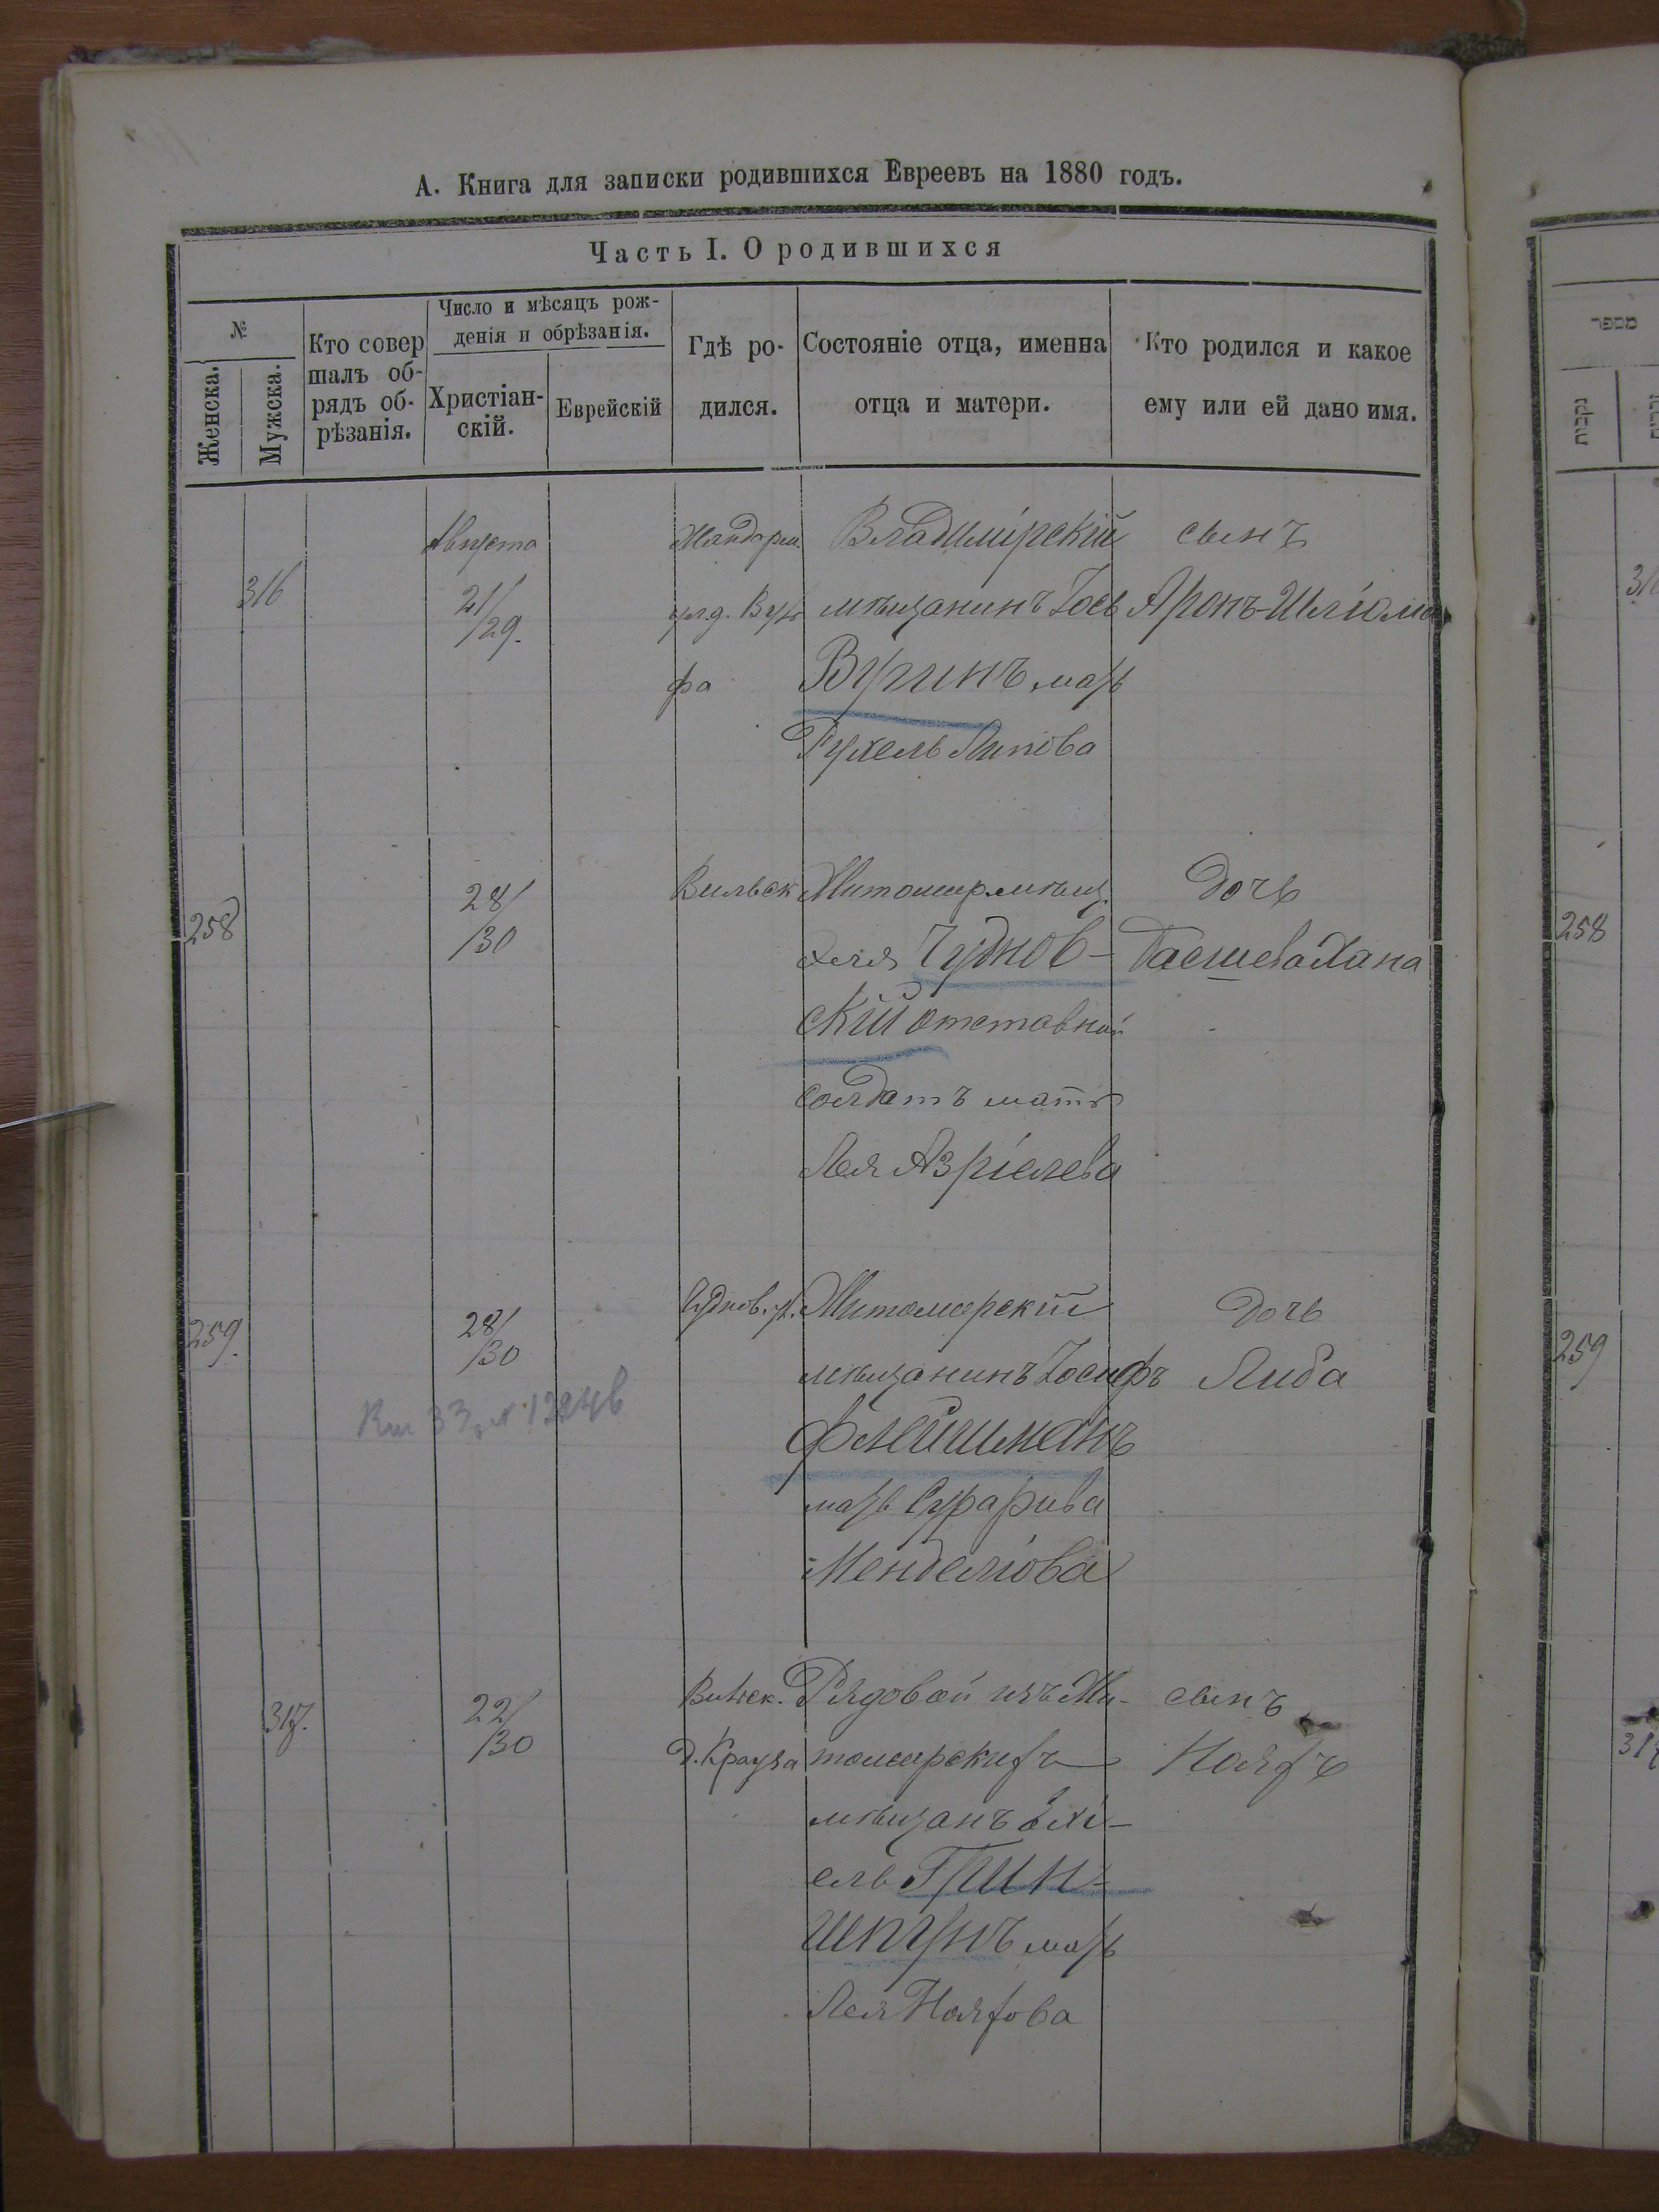 А. Книга для записки родившихся Евреевъ на 1880 годъ.
Часть I. О родившихся
№
Женска.
Мужска.
Кто совер
шалъ об-
рядъ об-
рѣзанія.
Число и мѣсяцъ рож-
денія и обрѣзанія.
Христіан-
скій.
Еврейскій
Гдѣ ро-
дился.
Состояніе отца, именна
отца и матери.
Кто родился и какое
ему или ей дано имя.
316
Августа
21/
/29.
Жандарм.
ул. д.
фа
Владимірскій
мѣщанинъ Іось
Вугинъ мать
Рухель Липова
сынъ
Аронъ-Шліома
258
28/
/30
Вильск
Житомир. мѣщ.
Чуднов-
скій отставной
солдатъ мать
Лея Азріелева
дочь
Басшева Хана
259.
28/
/30
Чуднов. ул.
Житомирскій
мѣщанинъ Іосифъ
Флейшманъ
мать Сура Рива
Менделіова
дочь
Либа
317.
22/
/30
Вильск.
д. Крауза
Рядовой изъ Жи-
томирскихъ
мѣщанъ Эхі-
ель Грин-
шпунъ мать
Лея Нояхова
сынъ
Нояхъ
מספר
נקבות
258
259